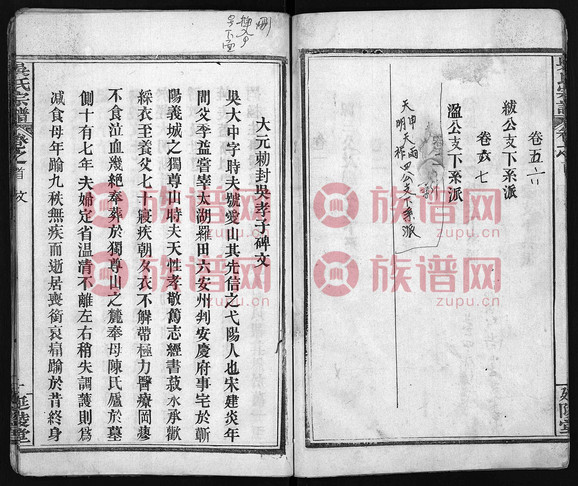 卷五 六
紱公支下系派
卷六 七
溫公支下系派
天申天雨
明天祚四公支下系派
延陵堂
刪
吳氏宗譜
卷之首 文
一 延陵堂
大元勅封吳孝子碑文
吳大中字時夫號愛山其先信之弋陽人也宋建炎年
間父季益嘗宰太湖羅田六安州判安慶府事宅於蘄
陽義城之獨尊山時夫天性孝敬篤志經書菽水承歡
綵衣至養父七十寢疾朝夕衣不解帶極力醫療罔瘳
不食泣血幾絶奉葬於獨尊山之麓奉母陳氏廬於墓
側十有七年夫婦定省温清不離左右稍失調護則爲
減食母年踰九秩無疾而逝居喪銜哀痛踰於昔終身
族谱网
zupu.cn
族谱网
zupu.cn
族谱网
zupu.cn
族谱网
zupu.cn